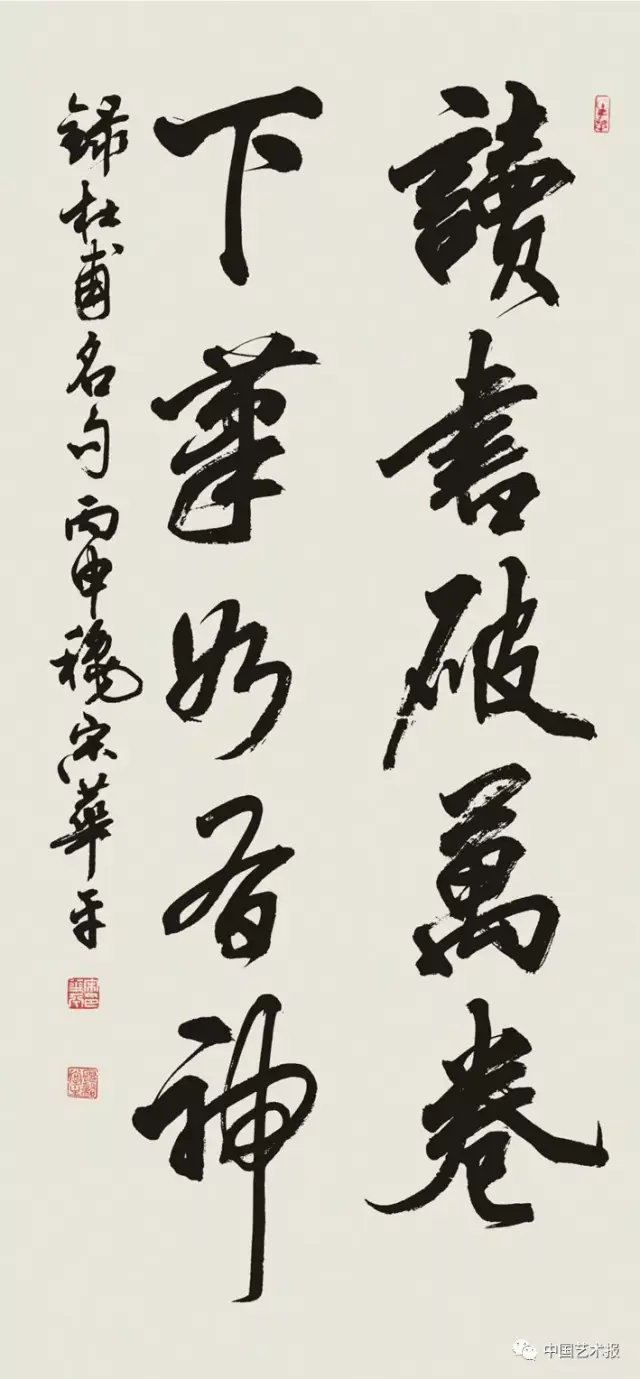 讀書破萬卷
下筆如有神
錄杜甫名句丙申穐宋華平
中国艺术报